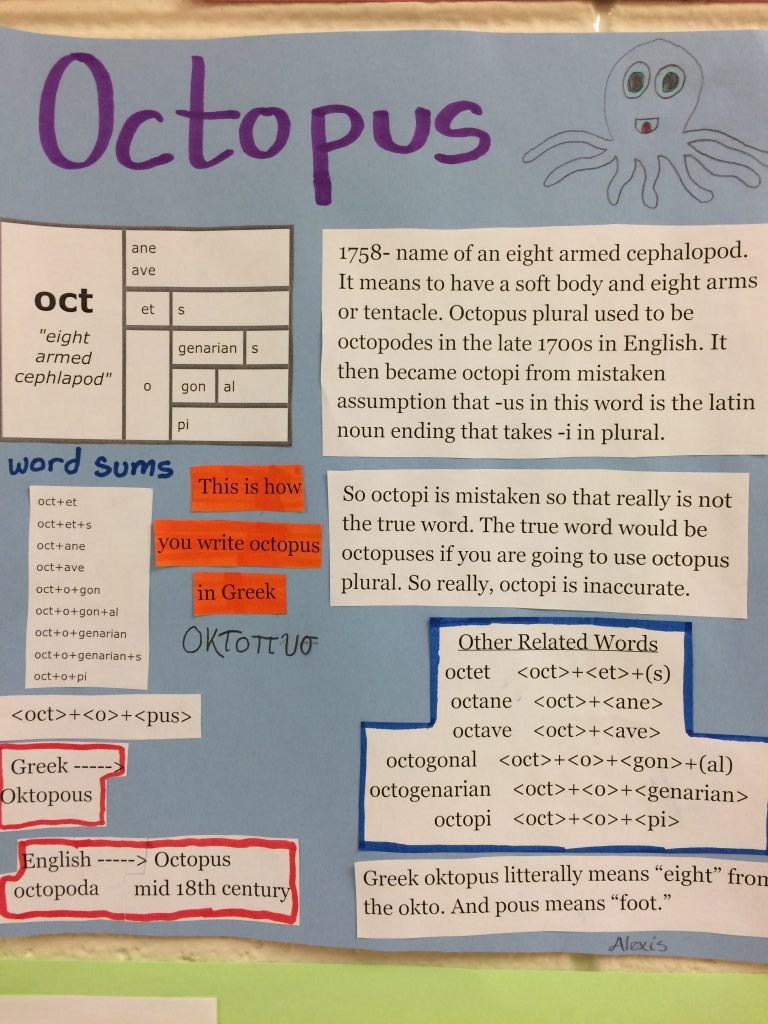 Octopus
oct
"eight
armed
cephlapod"
ane
ave
et s
o
genarian s
gon al
pi
1758- name of an eight armed cephalopod.
It means to have a soft body and eight arms
or tentacle. Octopus plural used to be
octopodes in the late 1700s in English. It
then became octopi from mistaken
assumption that -us in this word is the latin
noun ending that takes -i in plural.
word sums
oct+et
oct+et+s
oct+ane
oct+ave
oct+o+gon
oct+o+gon+al
oct+o+genarian
oct+o+genarian+s
oct+o+pi
This is how
you write octopus
in Greek
Οκτοπυσ
So octopi is mistaken so that really is not
the true word. The true word would be
octopuses if you are going to use octopus
plural. So really, octopi is inaccurate.
<oct>+<o>+<pus>
Greek ----->
Oktopous
English -----> Octopus
octopoda mid 18th century
Other Related Words
octet <oct>+<et>+(s)
octane <oct>+<ane>
octave <oct>+<ave>
octogonal <oct>+<o>+<gon>+(al)
octogenarian <oct>+<o>+<genarian>
octopi <oct>+<o>+<pi>
Greek oktopus litterally means “eight” from
the okto. And pous means “foot.”
Alexis